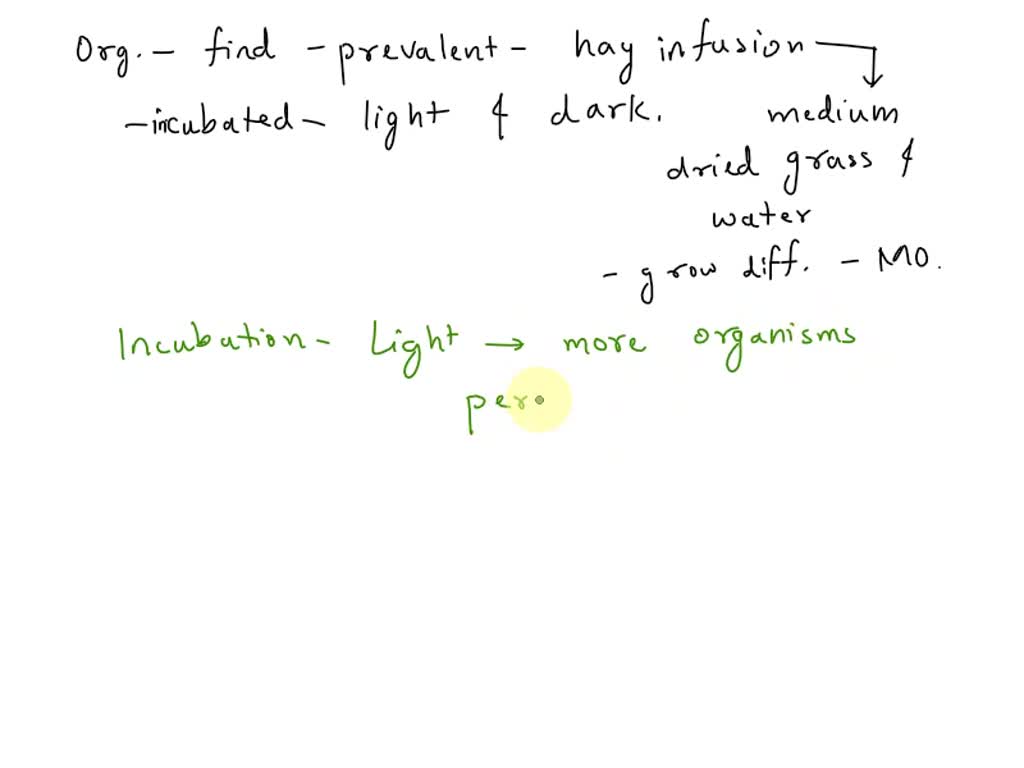 Org. - find - prevalent - hay infusion
- incubated - light & dark. medium
dried grass &
water
- grow diff. - MO.
Incubation - Light → more organisms
per